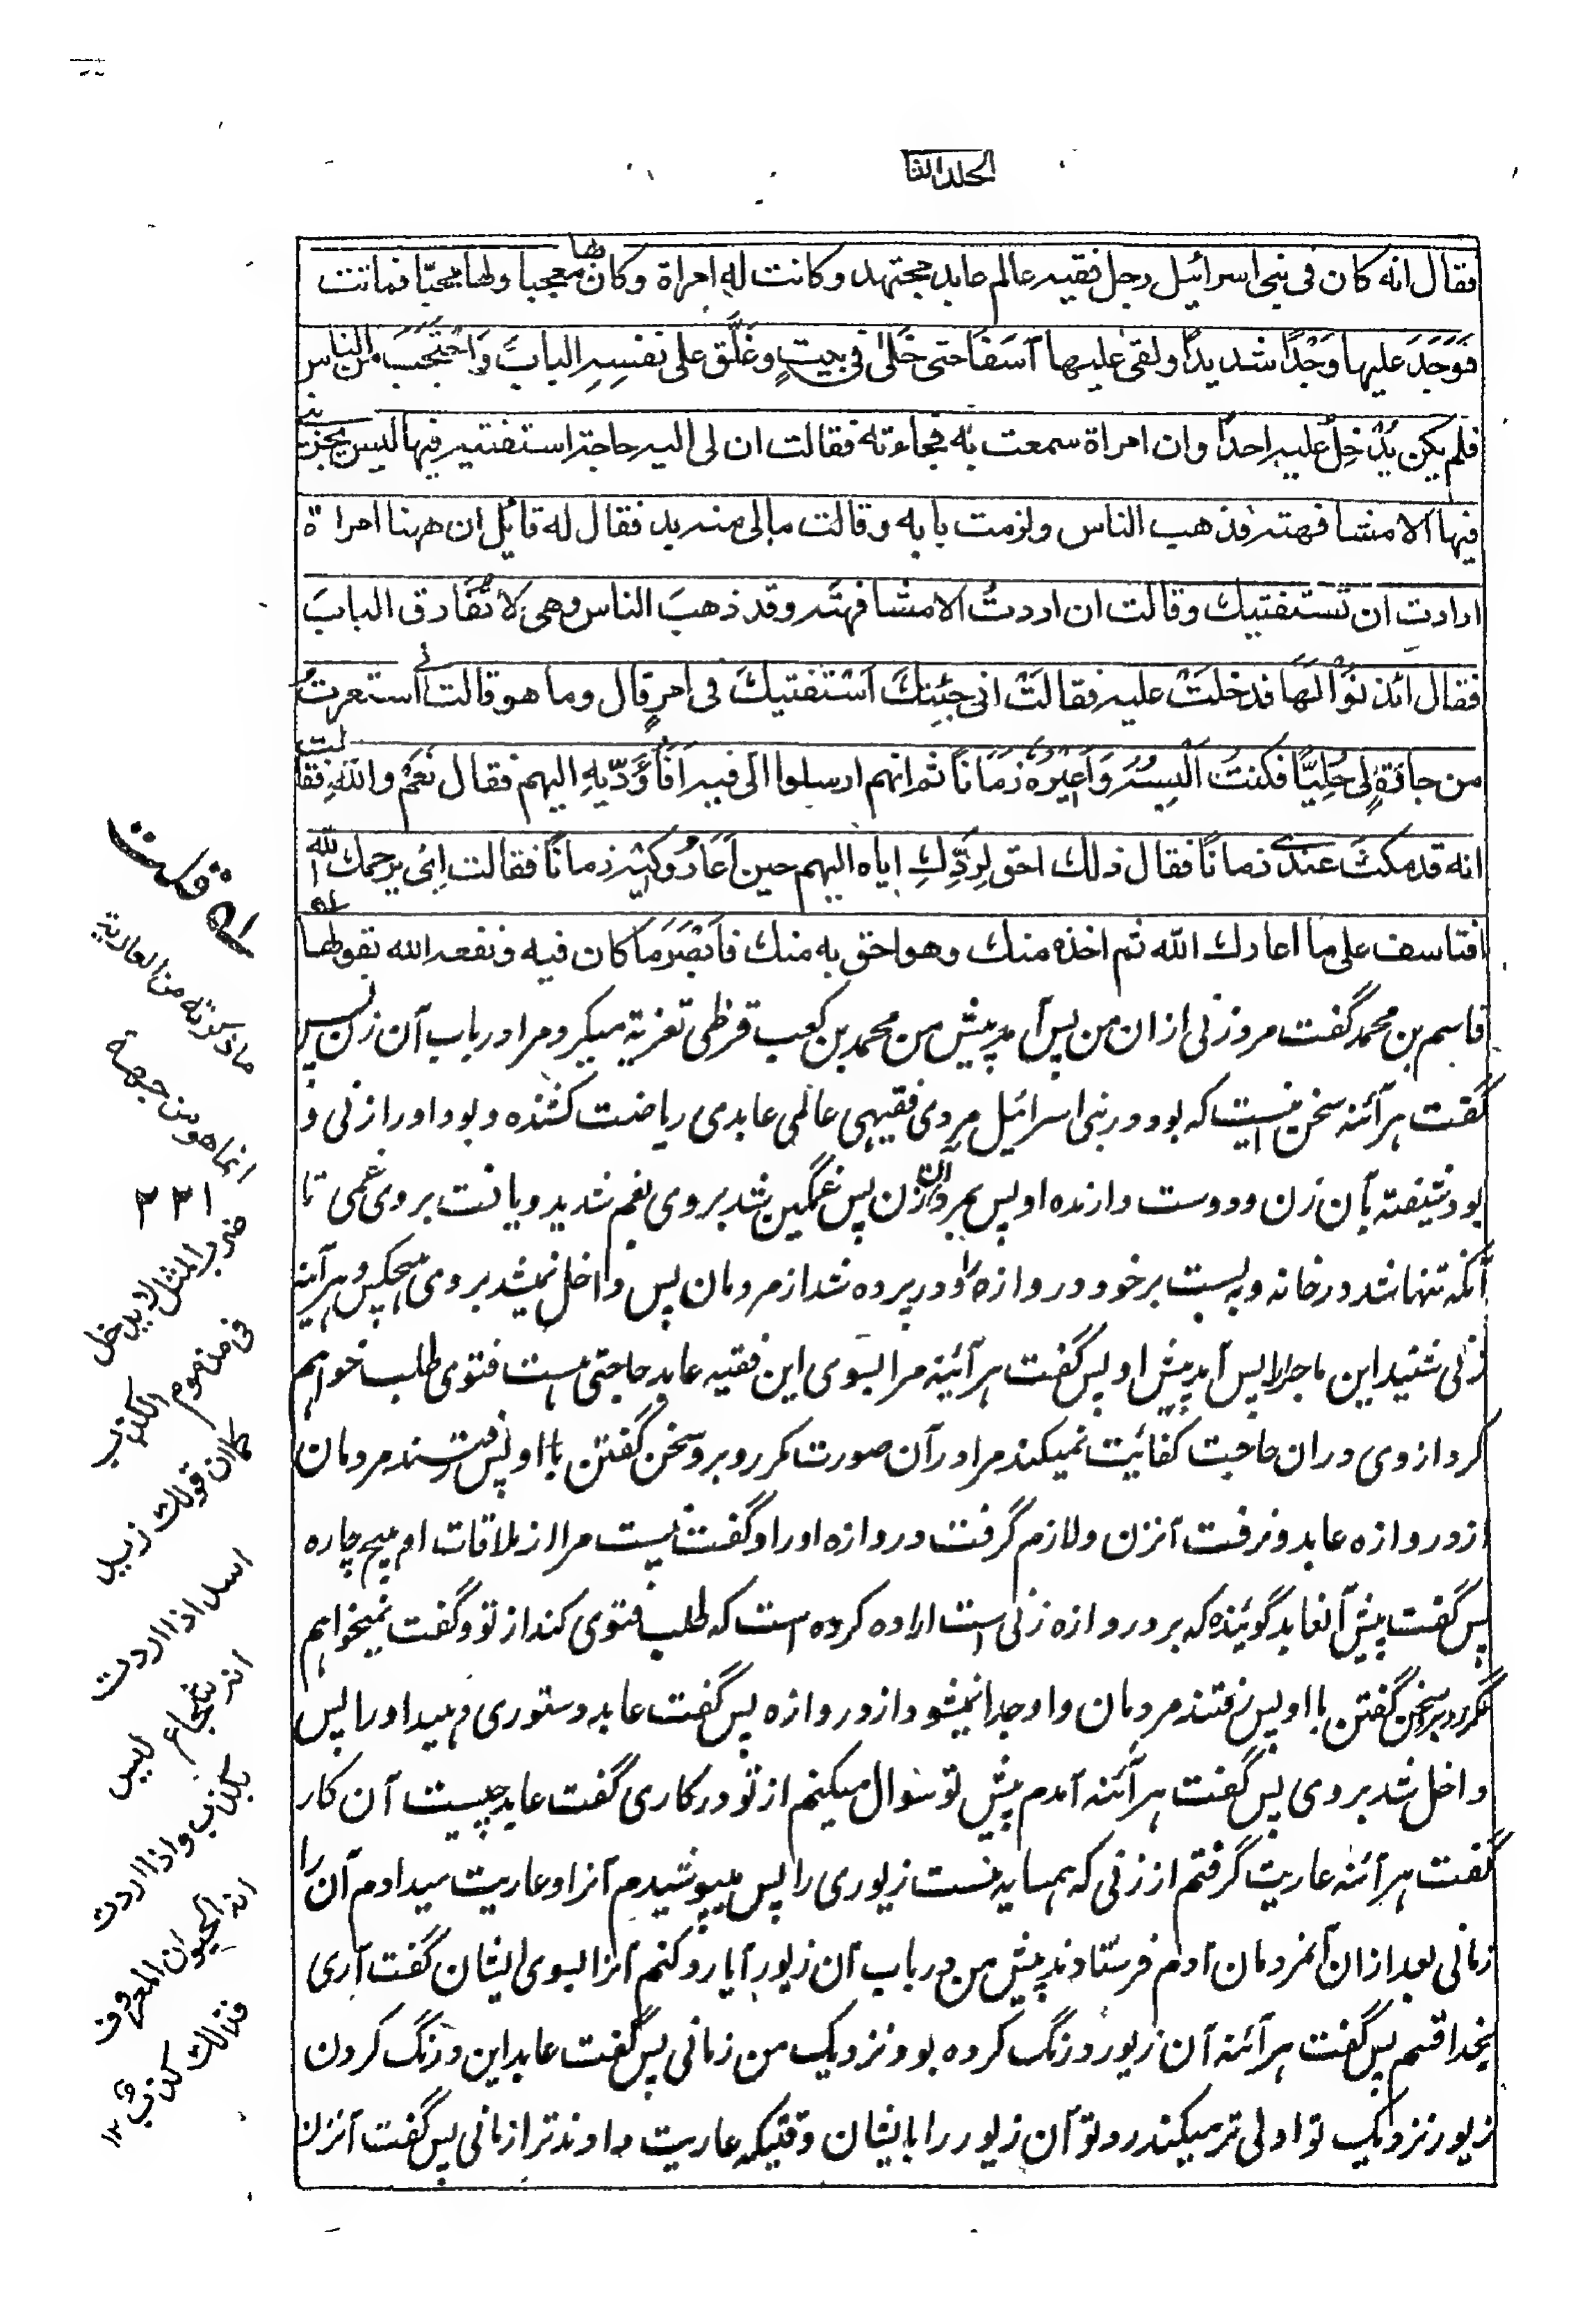 الجلد الثا
فقال انه كان فى بنى اسرائيل رجل فقيه عالم عابد مجتهد وكانت له امراة وكان بها معجبا ولها محبّا فماتت
فَوَجَدَ عليها وَجْدًا شديدًا ولقى عليها اَسَفًا حتى خَلٰى فى بيتٍ وغَلَّق على نفسِهِ البابَ وَاحْتَجَبَ من الناس
فلم يكن يَدْخِلُ عليه احدٌ وان امراة سمعت به فجاءته فقالت ان لى اليه حاجة استفتيه فيها ليس يجزينى
فيها الا مشافهته فذهب الناس ولزمت بابه وقالت مالى منه بد فقال له قايل ان ههنا امراة
ارادت ان تستفتيك وقالت ان اردتُ الا مشافهتَه وقد ذهبَ الناس وهى لا تُفَارق البابَ
فقال ائذنُوْا لَهَا فدخلَتْ عليه فقالَتْ انى جئتك اَسْتفتيكَ فى امرٍ قال وما هو قالت انى استعرتُ
من جارَةٍ لى حُلِيًّا فكنتُ اَلْبِسُهُ وَاُعِيْرُهُ زمَانًا ثم انهم ارسلوا اِلَىَّ فيه اَفَاُؤَدِّيهِ اليهم فقال نَعَمْ واللّٰهِ فقالت
انه قد مكثَ عندى زمانًا فقال ذلك احق لِرَدِّكِ اياه اليهم حين اَعَارُوكيْهِ زمانًا فقالت اِىْ يرحمك الله
افتاسف على ما اعارك الله ثم اخذه منك وهو احق به منك فاَبْصَرَ مَا كان فيه ونفعه الله بقولها
قاسم بن محمد گفت مرد زنى از ان من پس آمد پيش من محمد بن كعب قرظى تعزيه ميكرد مرا در باب آن زن پس
گفت هر آئنه سخن اينست كه بود در بنى اسرائيل مردى فقيهى عالمى عابدى رياضت كشنده و بود او را زنى و
بود شيفته بآن زن و دوست دارنده او پس بمرد آن زن پس غمگين شد بروى بغم شديد و يافت بروى غمى تا
آنكه تنها شد در خانه و به بست بر خود دروازه را و در پرده شد از مردمان پس داخل نميشد بروى هيچكس و هر آينه
زنى شنيد اين ماجرا پس آمد پيش او پس گفت هر آئينه مرا بسوى اين فقيه عابد حاجتى هست فتوى طلب خواهم
كرد از وى در ان حاجت كفائيت نميكند مرا در آن صورت مگر روبرو سخن گفتن با او پس رفتند مردمان
از دروازه عابد و نرفت آنزن و لازم گرفت دروازه او را و گفت نيست مرا از ملاقات او هيچ چاره
پس گفت پيش آنعابد گوئينده كه بر دروازه زنى است اراده كرده است كه طلب فتوى كند از تو و گفت نميخواهم
مگر روبرو سخن گفتن با او پس رفتند مردمان و او جدا نميشود از دروازه پس گفت عابد دستورى دهيد او را پس
داخل شد بروى پس گفت هر آئنه آمدم پيش تو سوال ميكنم از تو در كارى گفت عابد چيست آن كار
گفت هر آئنه عاريت گرفتم از زنى كه همسايه منست زيورى را پس ميپوشيدم آنرا و عاريت ميدادم آن را
زمانى بعد از ان آنمردمان آدم فرستادند پيش من در باب آن زيور آيا رد كنم آنرا بسوى ايشان گفت آرى
بخدا قسم پس گفت هر آئنه آن زيور درنگ كرده بود نزديك من زمانى پس گفت عابد اين درنگ كردن
زيور نزديك تو اولى تر ميكند رد تو آن زيور را بايشان وقتيكه عاريت دادند ترا زمانى پس گفت آنزن
ماذكرته من العارية
انما هو من جهة
ضرب المثل لا يدخل
فى مذموم الكذب
كما ان قولك زيد
اسد اذا اردت
انه شجاع ليس
بكذب واذا اردت
انه الحيوان المعروف
فذلك كذب ١٢